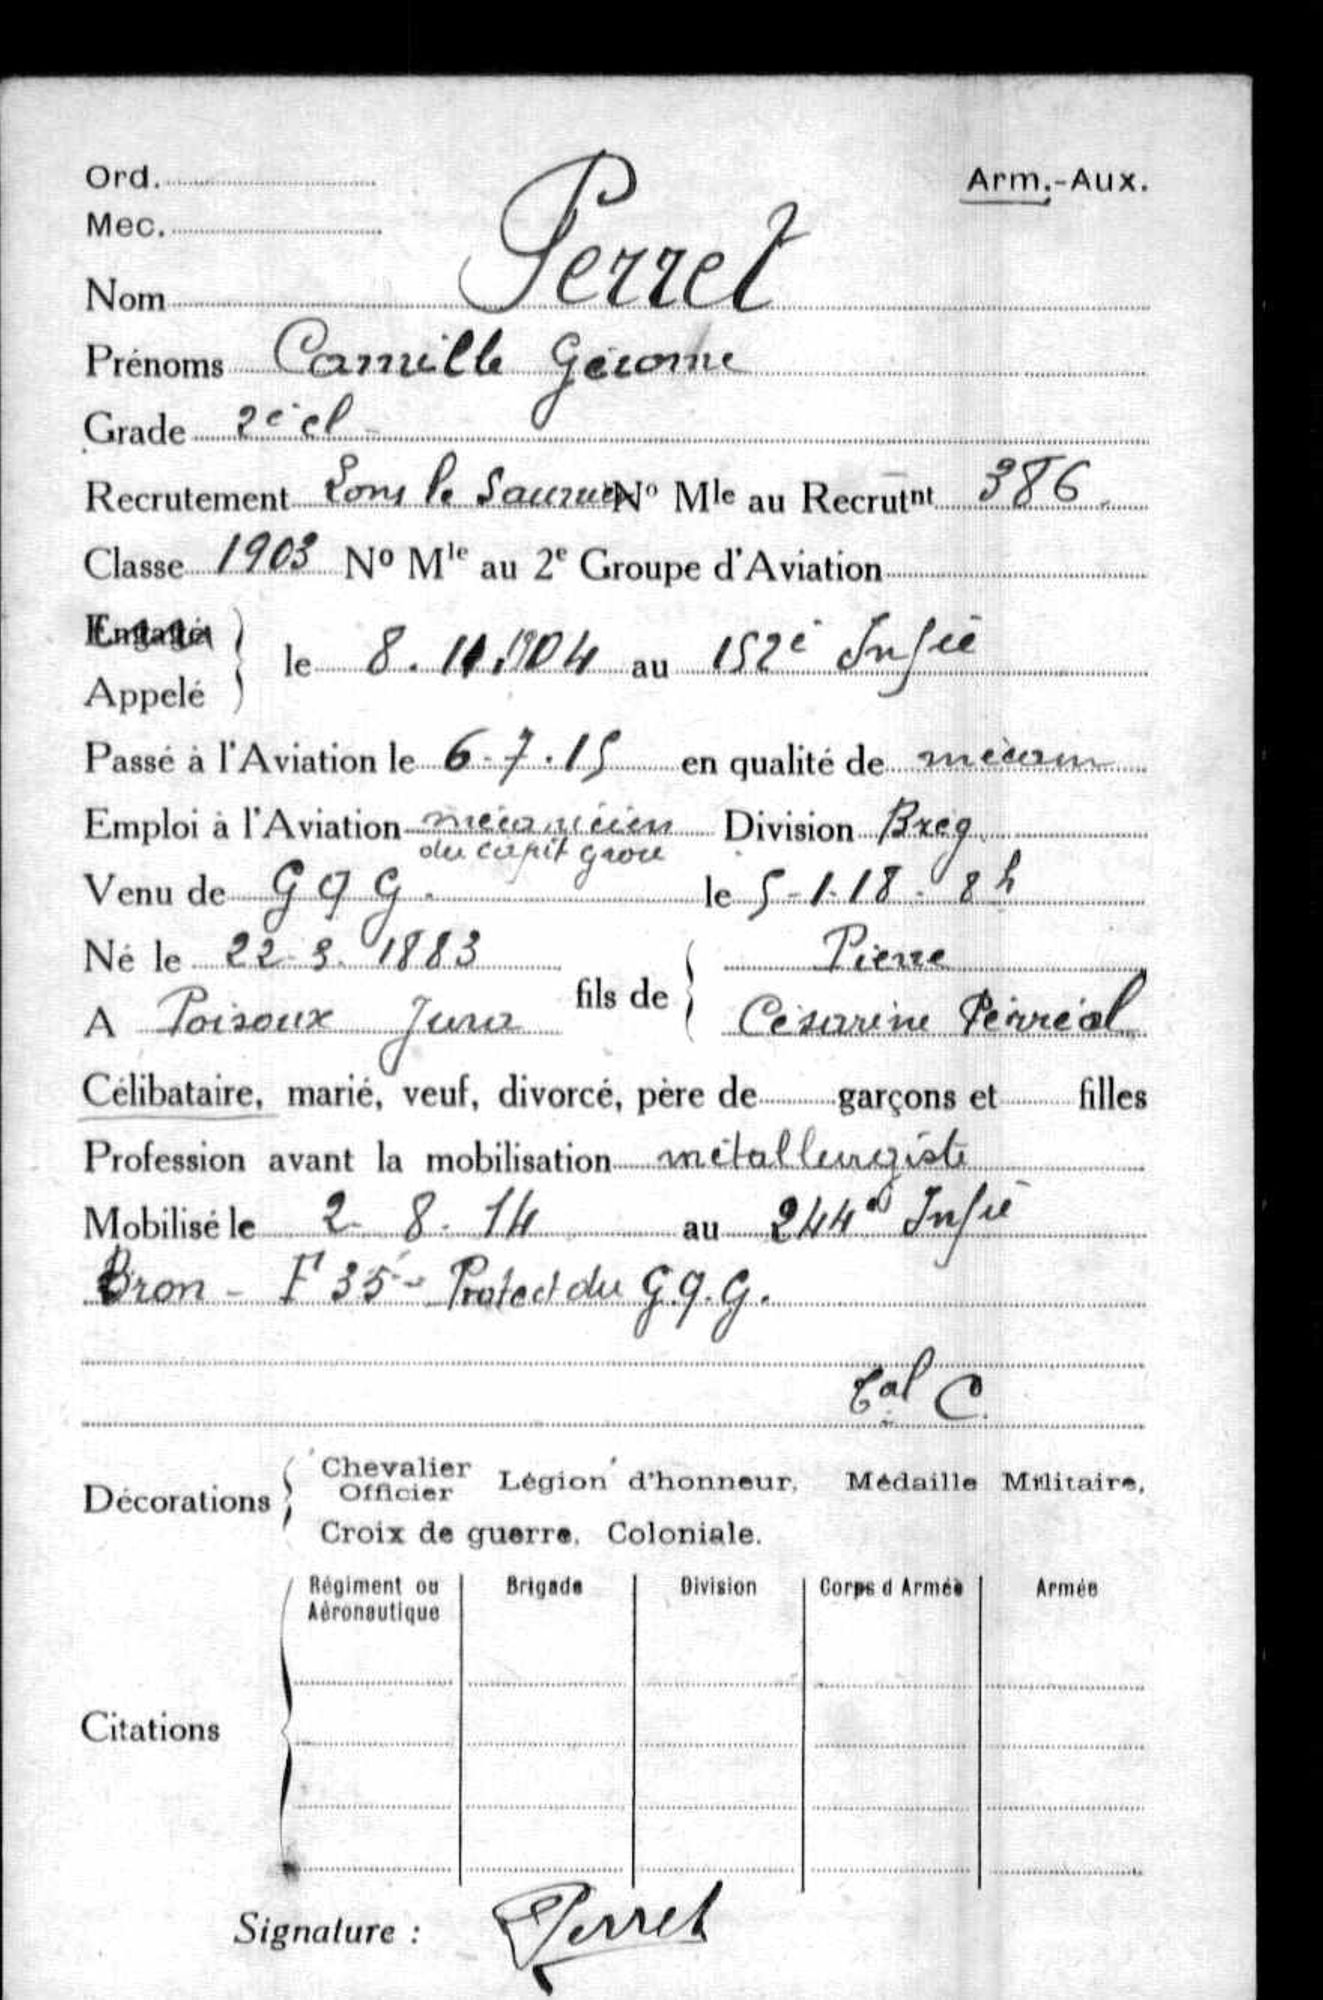 Ord. Arm.-Aux.
Mec.
Nom Perret
Prénoms Camille Gérome
Grade 2e cl
Recrutement Lons le Saunier No Mle au Recrutnt 386
Classe 1903 No Mle au 2e Groupe d'Aviation
Engagé
Appelé le 8.11.1904 au 152e Infie
Passé à l'Aviation le 6-7.15 en qualité de mécan
Emploi à l'Aviation mécanicien Division Breg
du capit
Venu de GQG. le 5-1-18-8h
Né le 22-3.1883 fils de Pierre
A Poisoux Jura Césarine Perréal
Célibataire, marié, veuf, divorcé, père de garçons et filles
Profession avant la mobilisation métallurgiste
Mobilisé le 2-8-14 au 244e Infie
Bron - F 35 - Protect du G.Q.G.
C.
Décorations Chevalier Officier Légion d'honneur, Médaille Militaire,
Croix de guerre, Coloniale.
Citations
Régiment ou Aéronautique Brigade Division Corps d Armée Armée
Signature : Perret